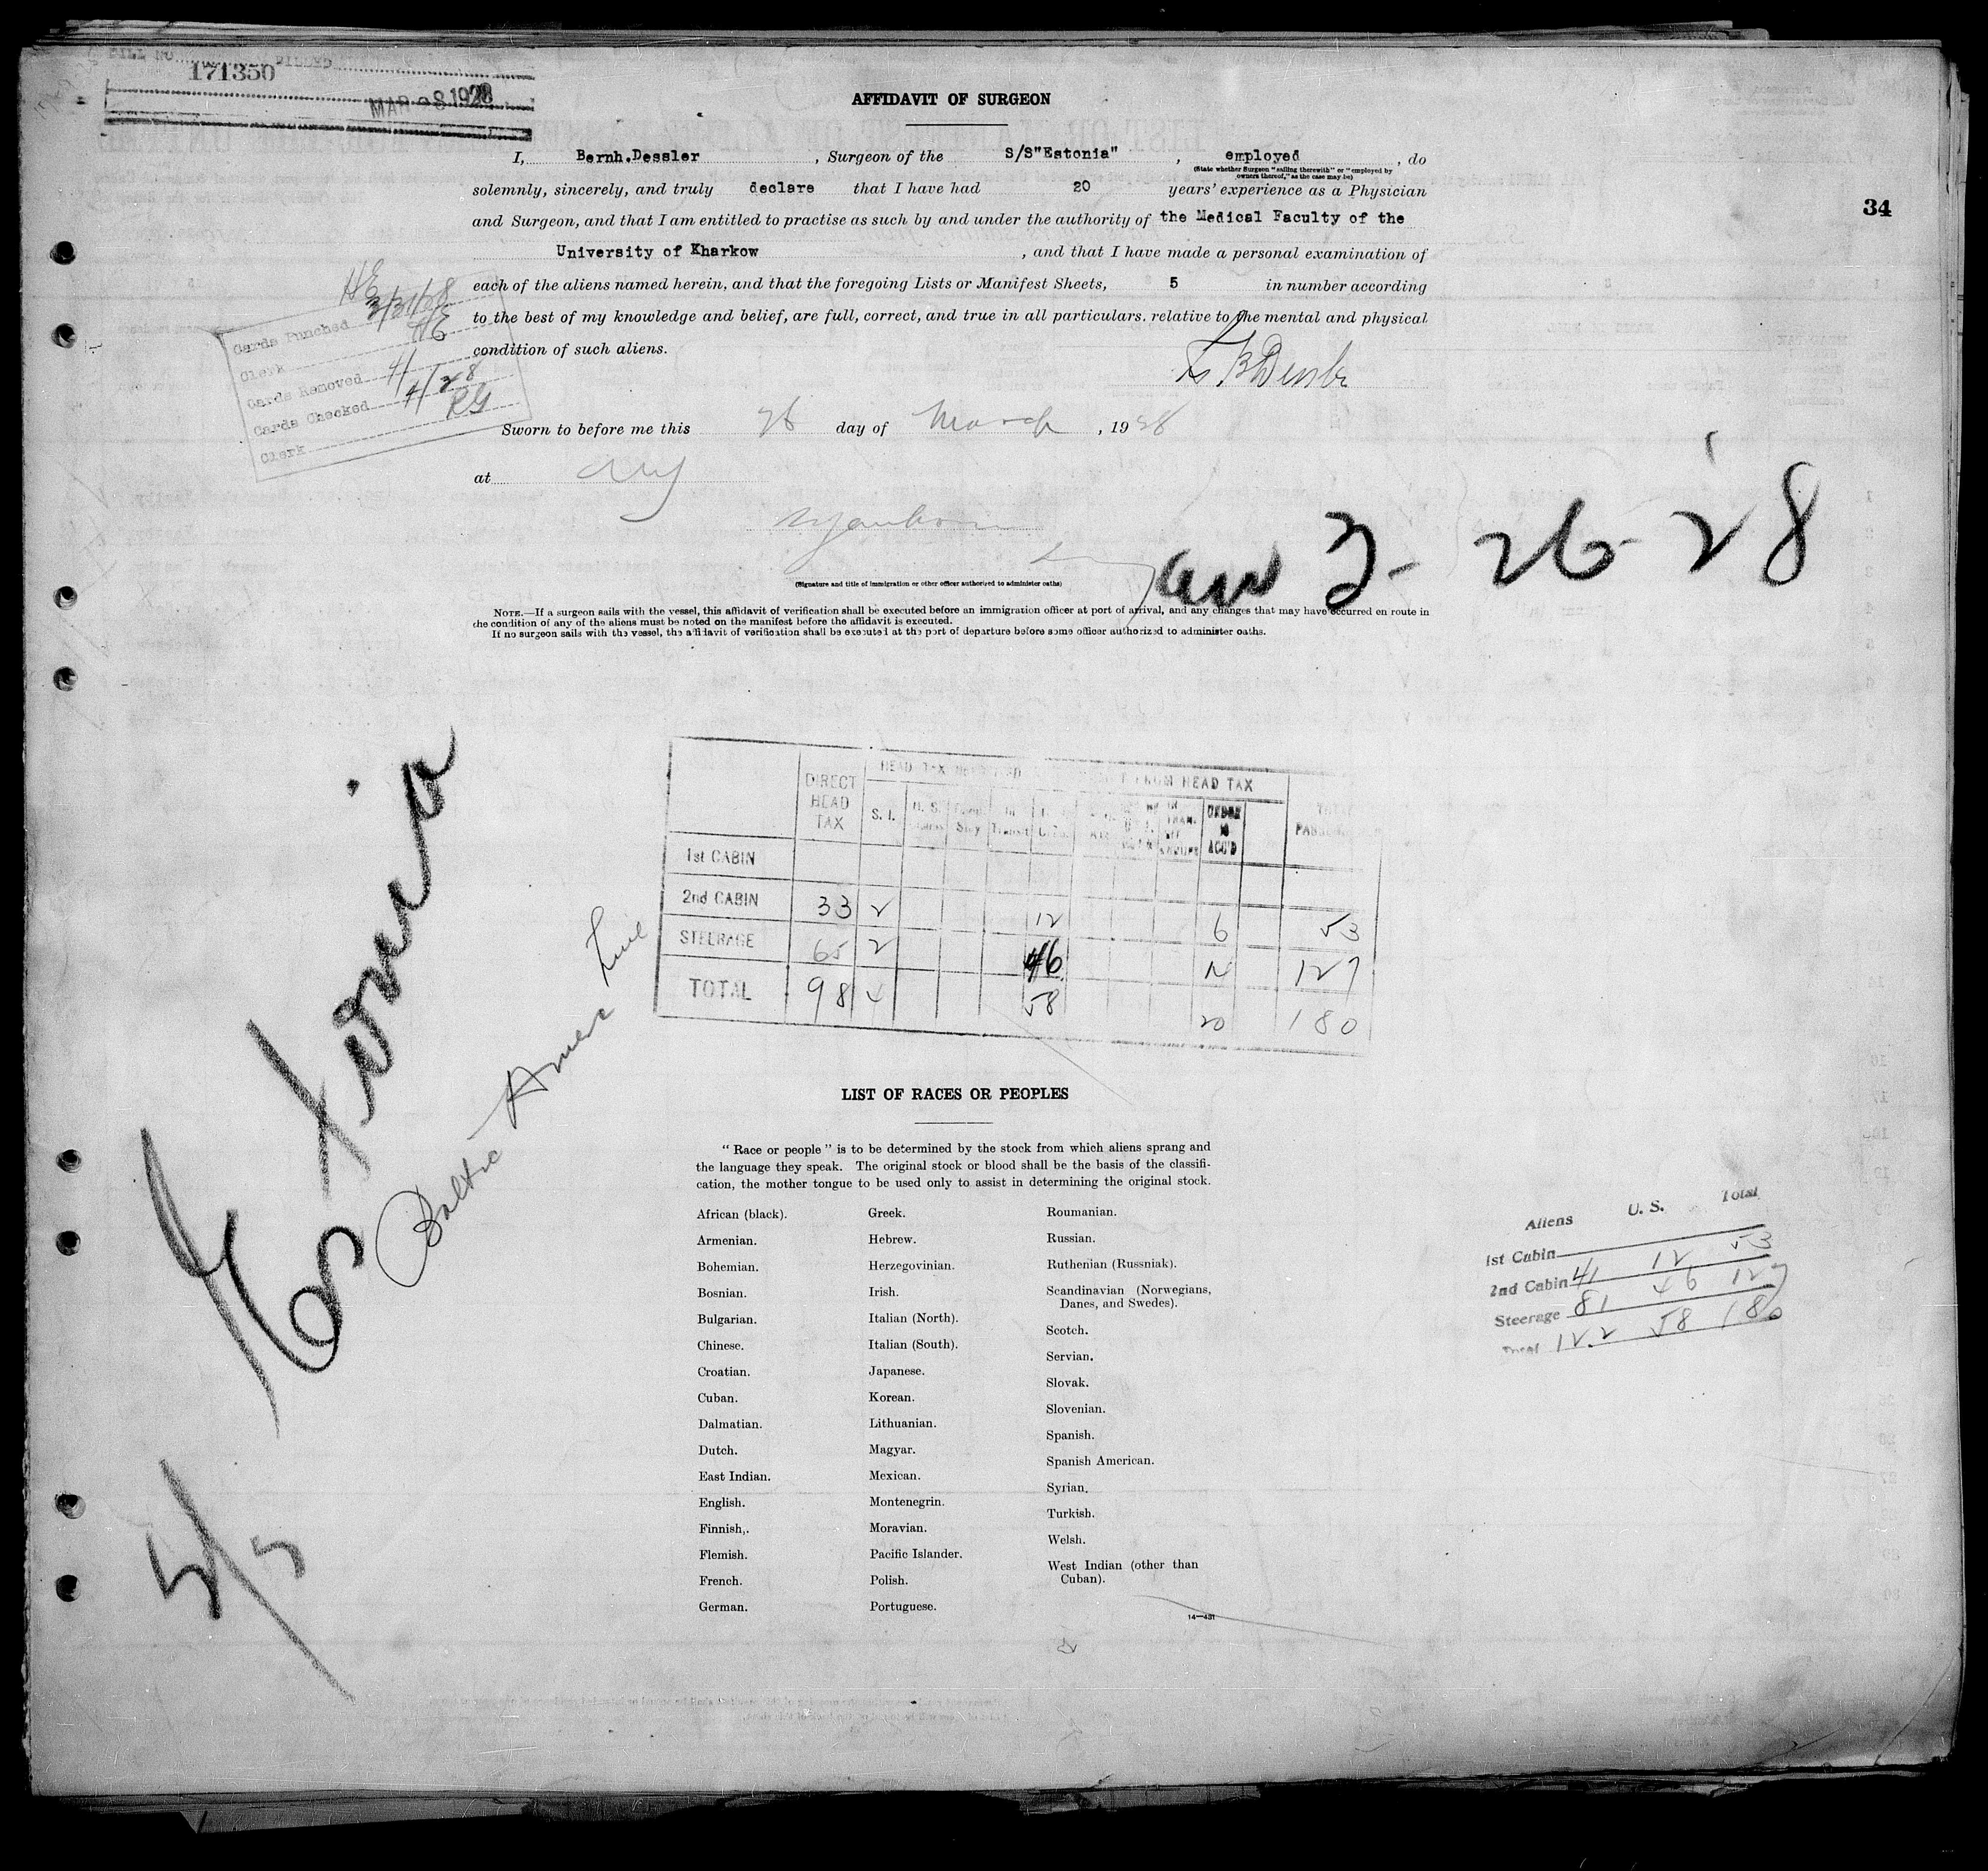 BILL NO. 171350 BILLED
MAR 28 1928
AFFIDAVIT OF SURGEON
34
I, Bernh.Dessler , Surgeon of the S/S"Estonia" , employed , do
(State whether Surgeon "sailing therewith" or "employed by
owners thereof," as the case may be)
solemnly, sincerely, and truly declare that I have had 20 years' experience as a Physician
and Surgeon, and that I am entitled to practise as such by and under the authority of the Medical Faculty of the
University of Kharkow , and that I have made a personal examination of
each of the aliens named herein, and that the foregoing Lists or Manifest Sheets, 5 in number according
to the best of my knowledge and belief, are full, correct, and true in all particulars. relative to the mental and physical
condition of such aliens.
Cards Punched 3/31/28
Clerk HE
Cards Removed
Cards Checked 4/28
Clerk RG
Sworn to before me this 26 day of March , 1928
at
3-26-28
(Signature and title of immigration or other officer authorized to administer oaths)
NOTE.—If a surgeon sails with the vessel, this affidavit of verification shall be executed before an immigration officer at port of arrival, and any changes that may have occurred en route in
the condition of any of the aliens must be noted on the manifest before the affidavit is executed.
If no surgeon sails with the vessel, the affidavit of verification shall be executed at the port of departure before some officer authorized to administer oaths.
Estonia
Baltic Amer Line
5/5
DIRECT HEAD TAX S. I. FROM HEAD TAX
1st CABIN
2nd CABIN 33 2 12 6 53
STEERAGE 65 2 46 14 127
TOTAL 98 4 58 20 180
LIST OF RACES OR PEOPLES
" Race or people " is to be determined by the stock from which aliens sprang and
the language they speak. The original stock or blood shall be the basis of the classifi-
cation, the mother tongue to be used only to assist in determining the original stock.
African (black).
Armenian.
Bohemian.
Bosnian.
Bulgarian.
Chinese.
Croatian.
Cuban.
Dalmatian.
Dutch.
East Indian.
English.
Finnish,.
Flemish.
French.
German.
Greek.
Hebrew.
Herzegovinian.
Irish.
Italian (North).
Italian (South).
Japanese.
Korean.
Lithuanian.
Magyar.
Mexican.
Montenegrin.
Moravian.
Pacific Islander.
Polish.
Portuguese.
Roumanian.
Russian.
Ruthenian (Russniak).
Scandinavian (Norwegians,
Danes, and Swedes).
Scotch.
Servian.
Slovak.
Slovenian.
Spanish.
Spanish American.
Syrian.
Turkish.
Welsh.
West Indian (other than
Cuban).
14—431
Aliens U. S. Total
1st Cabin
2nd Cabin 41 12 53
Steerage 81 46 127
Total 122 58 180